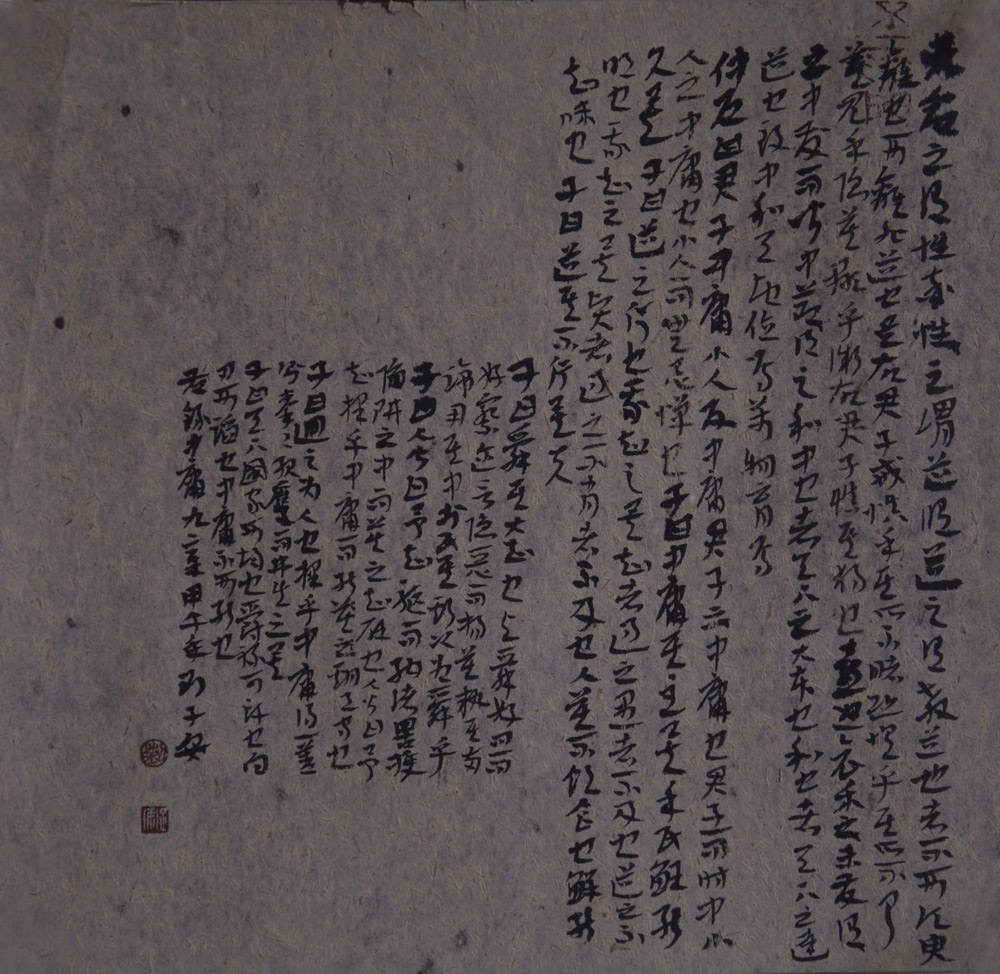 天命之謂性率性之謂道修道之謂教道也者不可須臾
離也可離非道也是故君子戒慎乎其所不睹恐懼乎其所不聞
莫見乎隱莫顯乎微故君子慎其獨也喜怒哀樂之未發謂
之中發而皆中節謂之和中也者天下之大本也和也者天下之達
道也致中和天地位焉萬物育焉
仲尼曰君子中庸小人反中庸君子之中庸也君子而時中小
人之中庸也小人而無忌憚也子曰中庸其至矣乎民鮮能
久矣子曰道之不行也我知之矣知者過之愚者不及也道之不
明也我知之矣賢者過之不肖者不及也人莫不飲食也鮮能
知味也子曰道其不行矣夫
子曰舜其大知也与舜好問而
好察邇言隱惡而揚善執其兩
端用其中於民其斯以為舜乎
子曰人皆曰予知驅而納諸罟擭
陷阱之中而莫之知辟也人皆曰予
知擇乎中庸而不能期月守也
子曰回之為人也擇乎中庸得一善
則拳拳服膺而弗失之矣
子曰天下國家可均也爵祿可辭也白
刃可蹈也中庸不可能也
右錄中庸九章甲午年